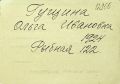 Гущина
Ольга Ивановна
1924
Рыбная 122